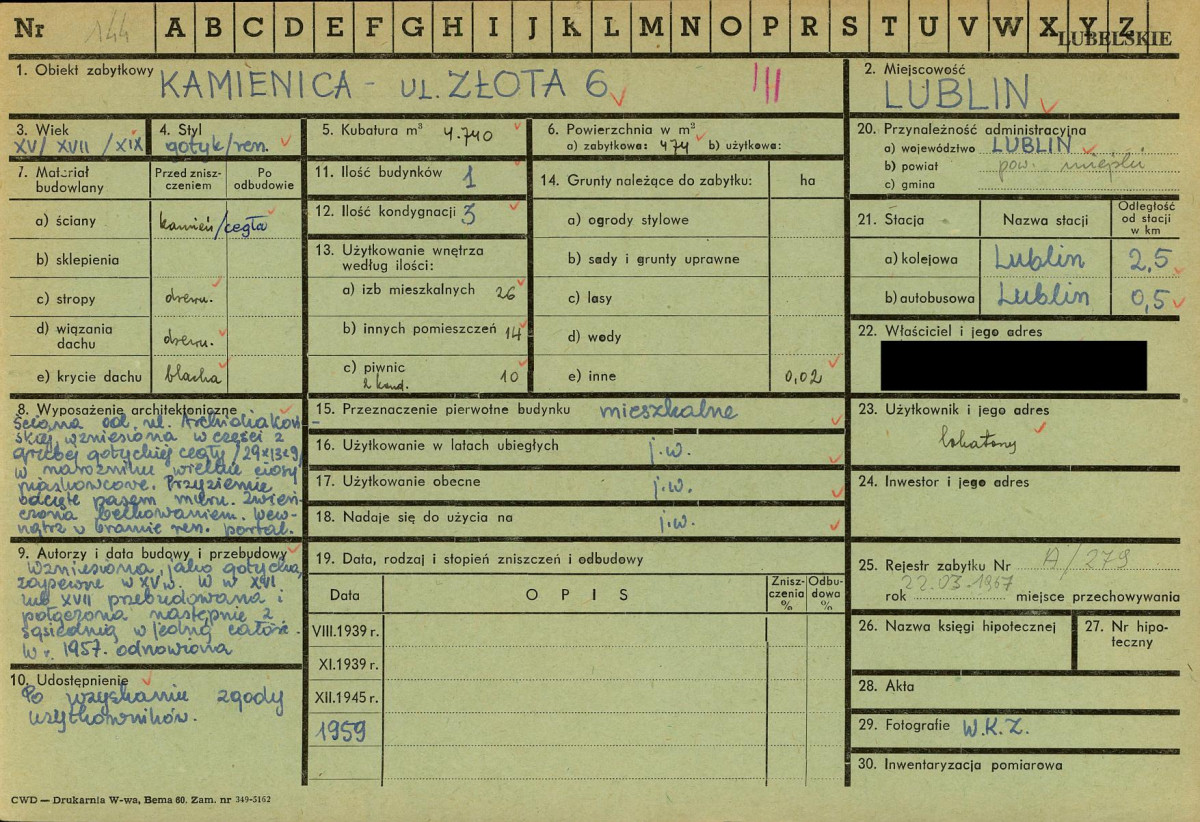 Nr 144 A B C D E F G H I J K L M N O P R S T U V W X Y Z
LUBELSKIE
1. Obiekt zabytkowy KAMIENICA - UL. ZŁOTA 6 III
2. Miejscowość
LUBLIN
3. Wiek
XV/ XVII /XIX
4. Styl
gotyk/ren.
5. Kubatura m³ 4.740
6. Powierzchnia w m²
a) zabytkowa: 474 b) użytkowa:
7. Materiał budowlany
Przed znisz-
czeniem
Po
odbudowie
a) ściany kamień/cegła
b) sklepienia
c) stropy drewn.
d) wiązania
dachu drewn.
e) krycie dachu blacha
8. Wyposażenie architektoniczne
Ściana od ul. Archidiakoń-
skiej wzniesiona w części z
grubej gotyckiej cegły /29x13x9/
w narożniku wielkie ciosy
piaskowcowe. Przyziemie
odcięte pasem muru. Zwień-
czona belkowaniem. Wew-
nątrz w bramie ren. portal.
9. Autorzy i data budowy i przebudowy
Wzniesiona jako gotycka,
zapewne w XV w. W w XVI
lub XVII przebudowana i
połączona następnie z
sąsiednią w jedną całość.
W r. 1957. odnowiona
10. Udostępnienie
Po uzyskaniu zgody
użytkowników.
11. Ilość budynków 1
12. Ilość kondygnacji 3
13. Użytkowanie wnętrza
według ilości:
a) izb mieszkalnych 26
b) innych pomieszczeń 14
c) piwnic 10
2 kond.
14. Grunty należące do zabytku: ha
a) ogrody stylowe
b) sady i grunty uprawne
c) lasy
d) wody
e) inne 0,02
15. Przeznaczenie pierwotne budynku mieszkalne
16. Użytkowanie w latach ubiegłych j.w.
17. Użytkowanie obecne j.w.
18. Nadaje się do użycia na j.w.
19. Data, rodzaj i stopień zniszczeń i odbudowy
Data O P I S
Znisz-
czenia
%
Odbu-
dowa
%
VIII.1939 r.
XI.1939 r.
XII.1945 r.
1959
20. Przynależność administracyjna
a) województwo LUBLIN
b) powiat pow. miejski
c) gmina
21. Stacja Nazwa stacji
Odległość
od stacji
w km
a) kolejowa Lublin 2,5
b) autobusowa Lublin 0,5
22. Właściciel i jego adres
23. Użytkownik i jego adres
lokatorzy
24. Inwestor i jego adres
25. Rejestr zabytku Nr A/279
22.03.1967
rok miejsce przechowywania
26. Nazwa księgi hipotecznej
27. Nr hipo-
teczny
28. Akta
29. Fotografie W.K.Z.
30. Inwentaryzacja pomiarowa
CWD — Drukarnia W-wa, Bema 60. Zam. nr 349-5162